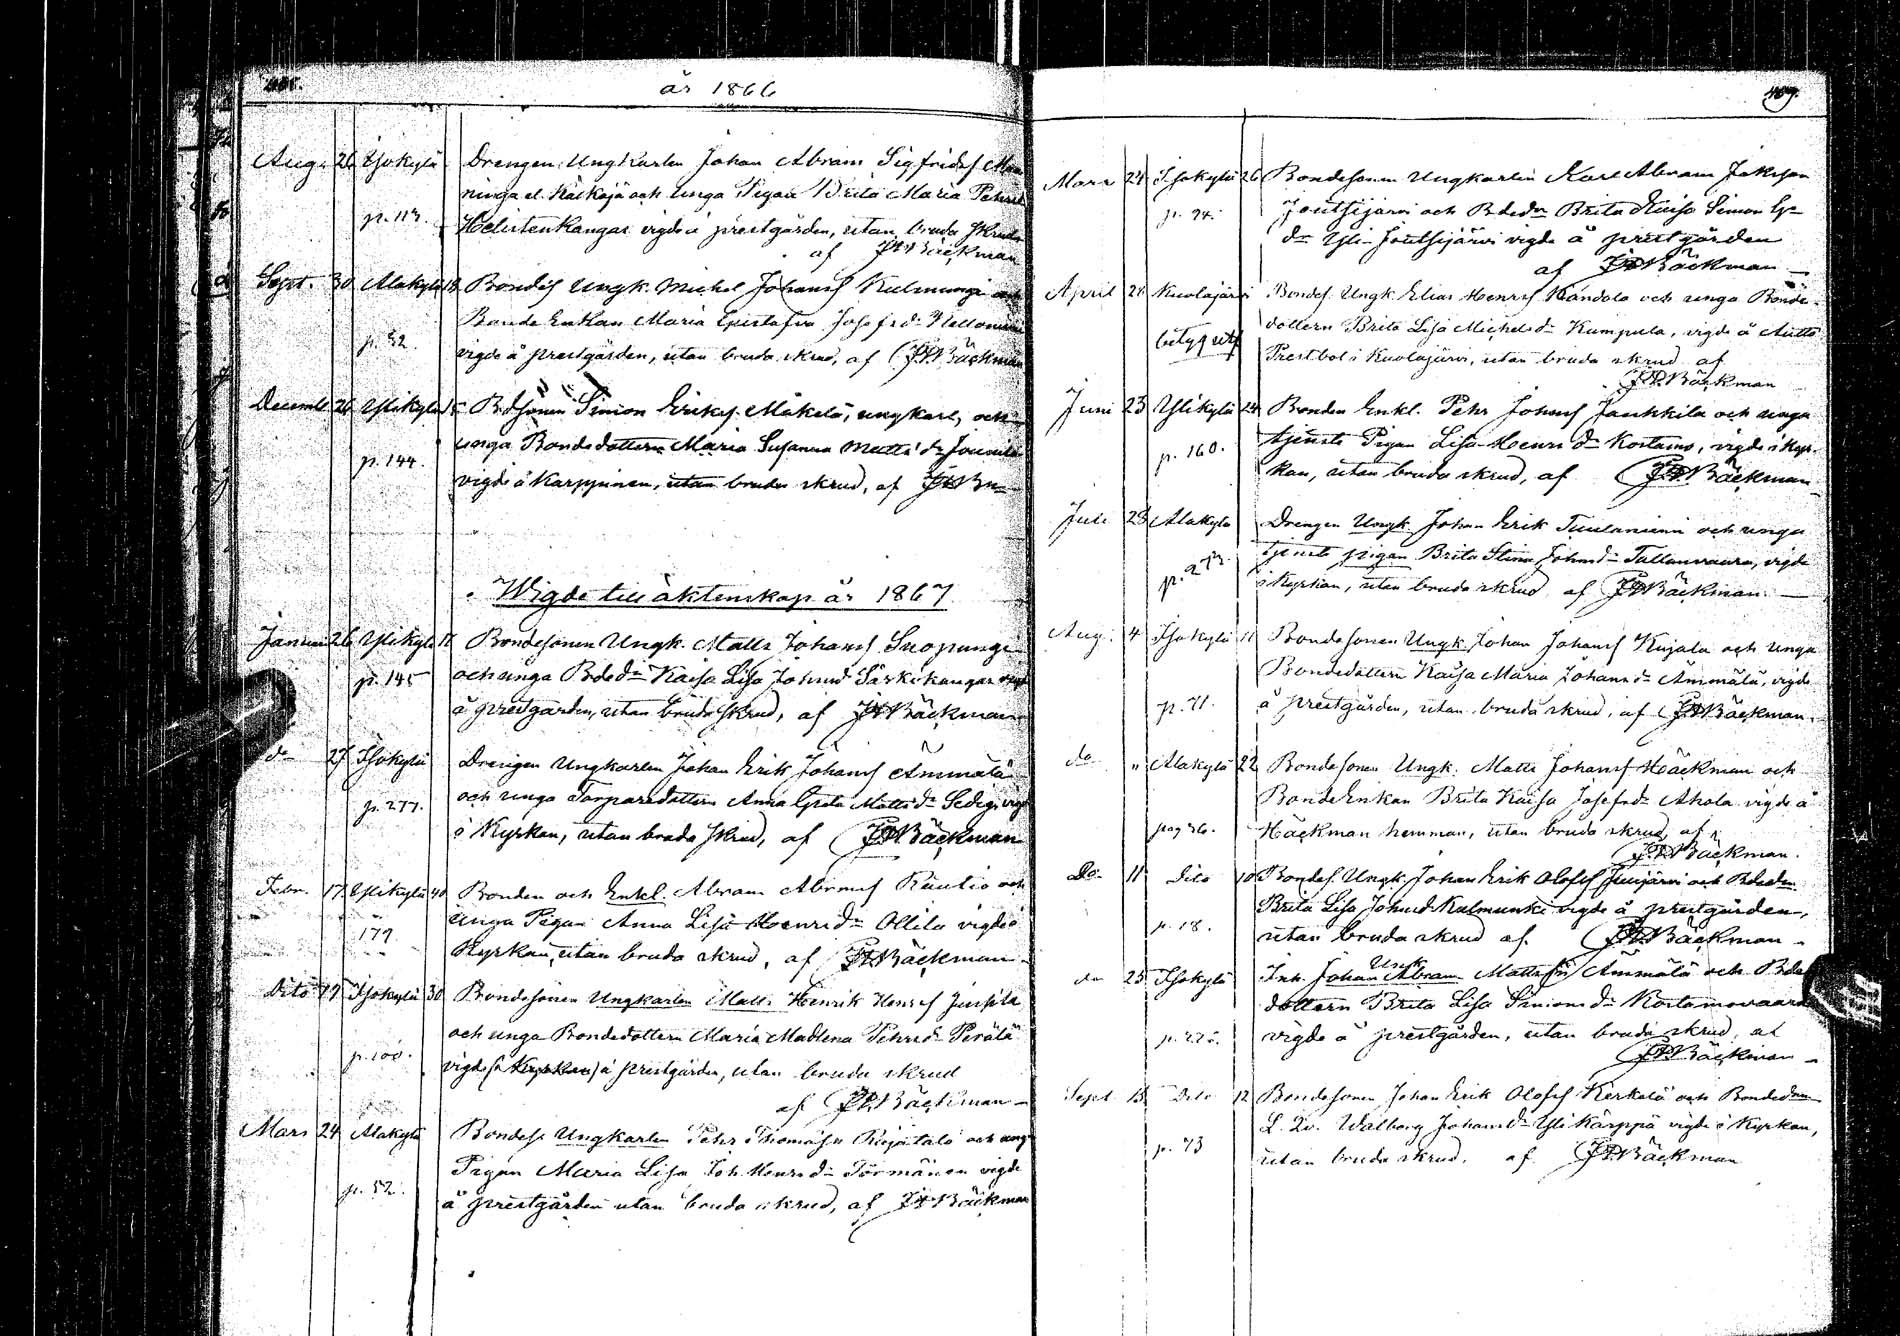 år 1866
Aug. 26 Isokylä Drengen Ungkarlen Johan Abram Sigfridsf
och unga Pigan Brita Maria Pehrsd
p. 113. Helistenkangas vigde å prestgården, utan bruda skrud
af J. W. Bäckman
Sept. 30 Alakylä 18 Bondes Ungk. Michel Johansf Kulmungi och
Bonde Enkan Maria Gustafva Josefsd:r
p. 52. vigde å prestgården, utan bruda skrud, af J. W. Bäckman
Decemb. 26 Ylikylä 15 Bdsonen Simon Eriksf. Mäkelä, ungkarl, och
unga Bondedottern Maria Susanna Matts d:r
p. 144. vigde å Karppinen, utan bruda skrud, af
Wigde till äktenskap år 1867
Januari 26 Ylikylä 17 Bondesonen Ungk. Matts Johansf Suopungi
p. 145 och unga Bded:r Kaisa Lisa Johnsd Särkikangas
å prestgården, utan bruda skrud, af J. W. Bäckman
do 27 Isokylä Drengen Ungkarlen Johan Erik Johansf Ämmälä
p. 277. och unga Torparedottern Anna Greta Mattsd:r
i Kyrkan, utan bruda skrud, af J. W. Bäckman
Febr. 17 Ylikylä 40 Bonden och Enkl. Abram Abramsf Rautio och
179 unga Pigan Anna Lisa Henrisd:r Ollila vigde i
Kyrkan, utan bruda skrud, af J. W. Bäckman
Dito 19 Isokylä 30 Bondesonen Ungkarlen Matts Henrik Henrsf Junttila
och unga Bondedottern Maria Madlena Pehrsd:r Perälä
p. 100. vigde (i Kyrkan) å prestgården, utan bruda skrud
af J. W. Bäckman
Mars 24 Alakylä Bondes. Ungkarlen Pehr Thomasf och
Pigan Maria Lisa Joh. Henrsd:r Törmänen vigde
p. 52. å prestgården utan bruda skrud, af J. W. Bäckman
Mars 24 Isokylä 26 Bondesonen Ungkarlen Karl Abram Jakson
p. 94. Joutsijärvi och Bded:r Brita Kaisa Simon
d:r Yli-Joutsijärvi vigde å prestgården
af J. W. Bäckman
April 24 Kuolajärvi Bondes. Ungk. Elias Henrsf Kandola och unga Bonde-
betyg utf dottern Brita Lisa Michelsd:r Kumpula, vigde å
Prestbol i Kuolajärvi, utan bruda skrud af
J. W. Bäckman
Juni 23 Ylikylä 24 Bonden Enkl. Pehr Johansf Jauhkila och unga
p. 160. tjenste Pigan Lisa Henrisd:r Kostamo, vigde i Kyr-
kan, utan bruda skrud, af J. W. Bäckman
Juli 28 Alakylä Drengen Ungk. Johan Erik Tuulaniemi och unga
p. 273. tjenste pigan Brita Stina Johansd:r Tallavaara, vigde
i Kyrkan, utan bruda skrud af J. W. Bäckman
Aug. 4 Isokylä 11 Bondesonen Ungk. Johan Johansf Kujala och unga
Bondedottern Kaisa Maria Johansd:r Ämmälä, vigde
p. 71. å prestgården, utan bruda skrud, af J. W. Bäckman.
do " Alakylä 22 Bondesonen Ungk. Matts Johansf Häckman och
BondeEnkan Brita Kaisa Josefsd:r Ahola vigde å
pag 36. Häckman hemman, utan bruda skrud, af
J. W. Bäckman.
Do. 11 Dito 10 Bondes. Ungk. Johan Erik Olofsf och Bdedn
Brita Lisa Johnsd Kulmunki vigde å prestgården,
p. 18. utan bruda skrud af. J. W. Bäckman
do 25 Isokylä Inh. Johan Ungk. Abram Matts Ämmälä och Bde
dottern Brita Lisa Simonsd:r Kostamovaara
p. 225. vigde å prestgården, utan bruda skrud, af
J. W. Bäckman
Sept 15 Dito 12 Bondesonen Johan Erik Olofsf Kerkelä och Bonded
Walborg Johansd:r Yli Kärppä vigde i Kyrkan,
p. 73 utan bruda skrud. af J. W. Bäckman